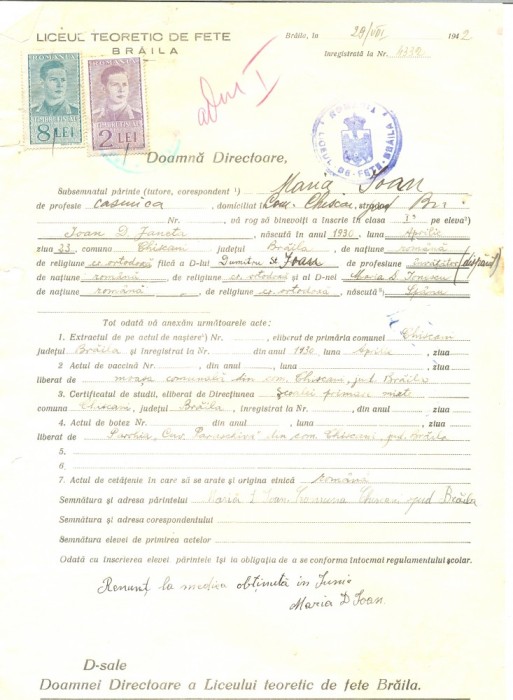 LICEUL TEORETIC DE FETE
BRĂILA
Brăila, la 28/VIII 1942
înregistrată la Nr.
ROMANIA
8 LEI
TIMBRU FISCAL
ROMANIA
2 LEI
TIMBRU FISCAL
adm I
LICEUL DE FETE BRĂILA
Doamnă Directoare,
Subsemnatul părinte (tutore, corespondent ¹) Maria Ioan
de profesie casnica, domiciliat în Com. Chiscani, Br.
Nr. , vă rog să binevoiți a înscrie în clasa I a pe eleva²)
Ioan D. Janeta, născută în anul 1930 luna Aprilie
ziua 23 comuna Chiscani județul Brăila, de națiune română
de religiune cr. ortodoxă fiică a D-lui Dumitru St. Ioan de profesiune învățător (dispărut)
de națiune română, de religiune cr. ortodoxă și al D-nei Maria D. Ionescu
de națiune română, de religiune cr. ortodoxă, născută³)
Tot odată vă anexăm următoarele acte:
1. Extractul de pe actul de naștere³) Nr. , eliberat de primăria comunei Chiscani
județul Brăila și înregistrat la Nr. din anul 1930 luna Aprilie, ziua
2. Actul de vaccină Nr. , din anul , luna , ziua
liberat de moașa comunală din com. Chiscani, jud. Brăila
3. Certificatul de studii, eliberat de Direcțiunea Școalei primare mixte
comuna Chiscani, județul Brăila, înregistrat la Nr. din anul ziua
4. Actul de botez Nr. , din anul , luna ziua
liberat de Parohia „Cuv. Paraschiva" din com. Chiscani, jud. Brăila
5.
6.
7. Actul de cetățenie în care să se arate și origina etnică română
Semnătura și adresa părintelui Maria D Ioan Comuna Chiscani jud Brăila
Semnătura și adresa corespondentului
Semnătura elevei de primirea actelor
Odată cu înscrierea elevei părintele își ia obligația de a se conforma întocmai regulamentului școlar.
Renunț la media obținută în Iunie
Maria D Ioan.
D-sale
Doamnei Directoare a Liceului teoretic de fete Brăila.